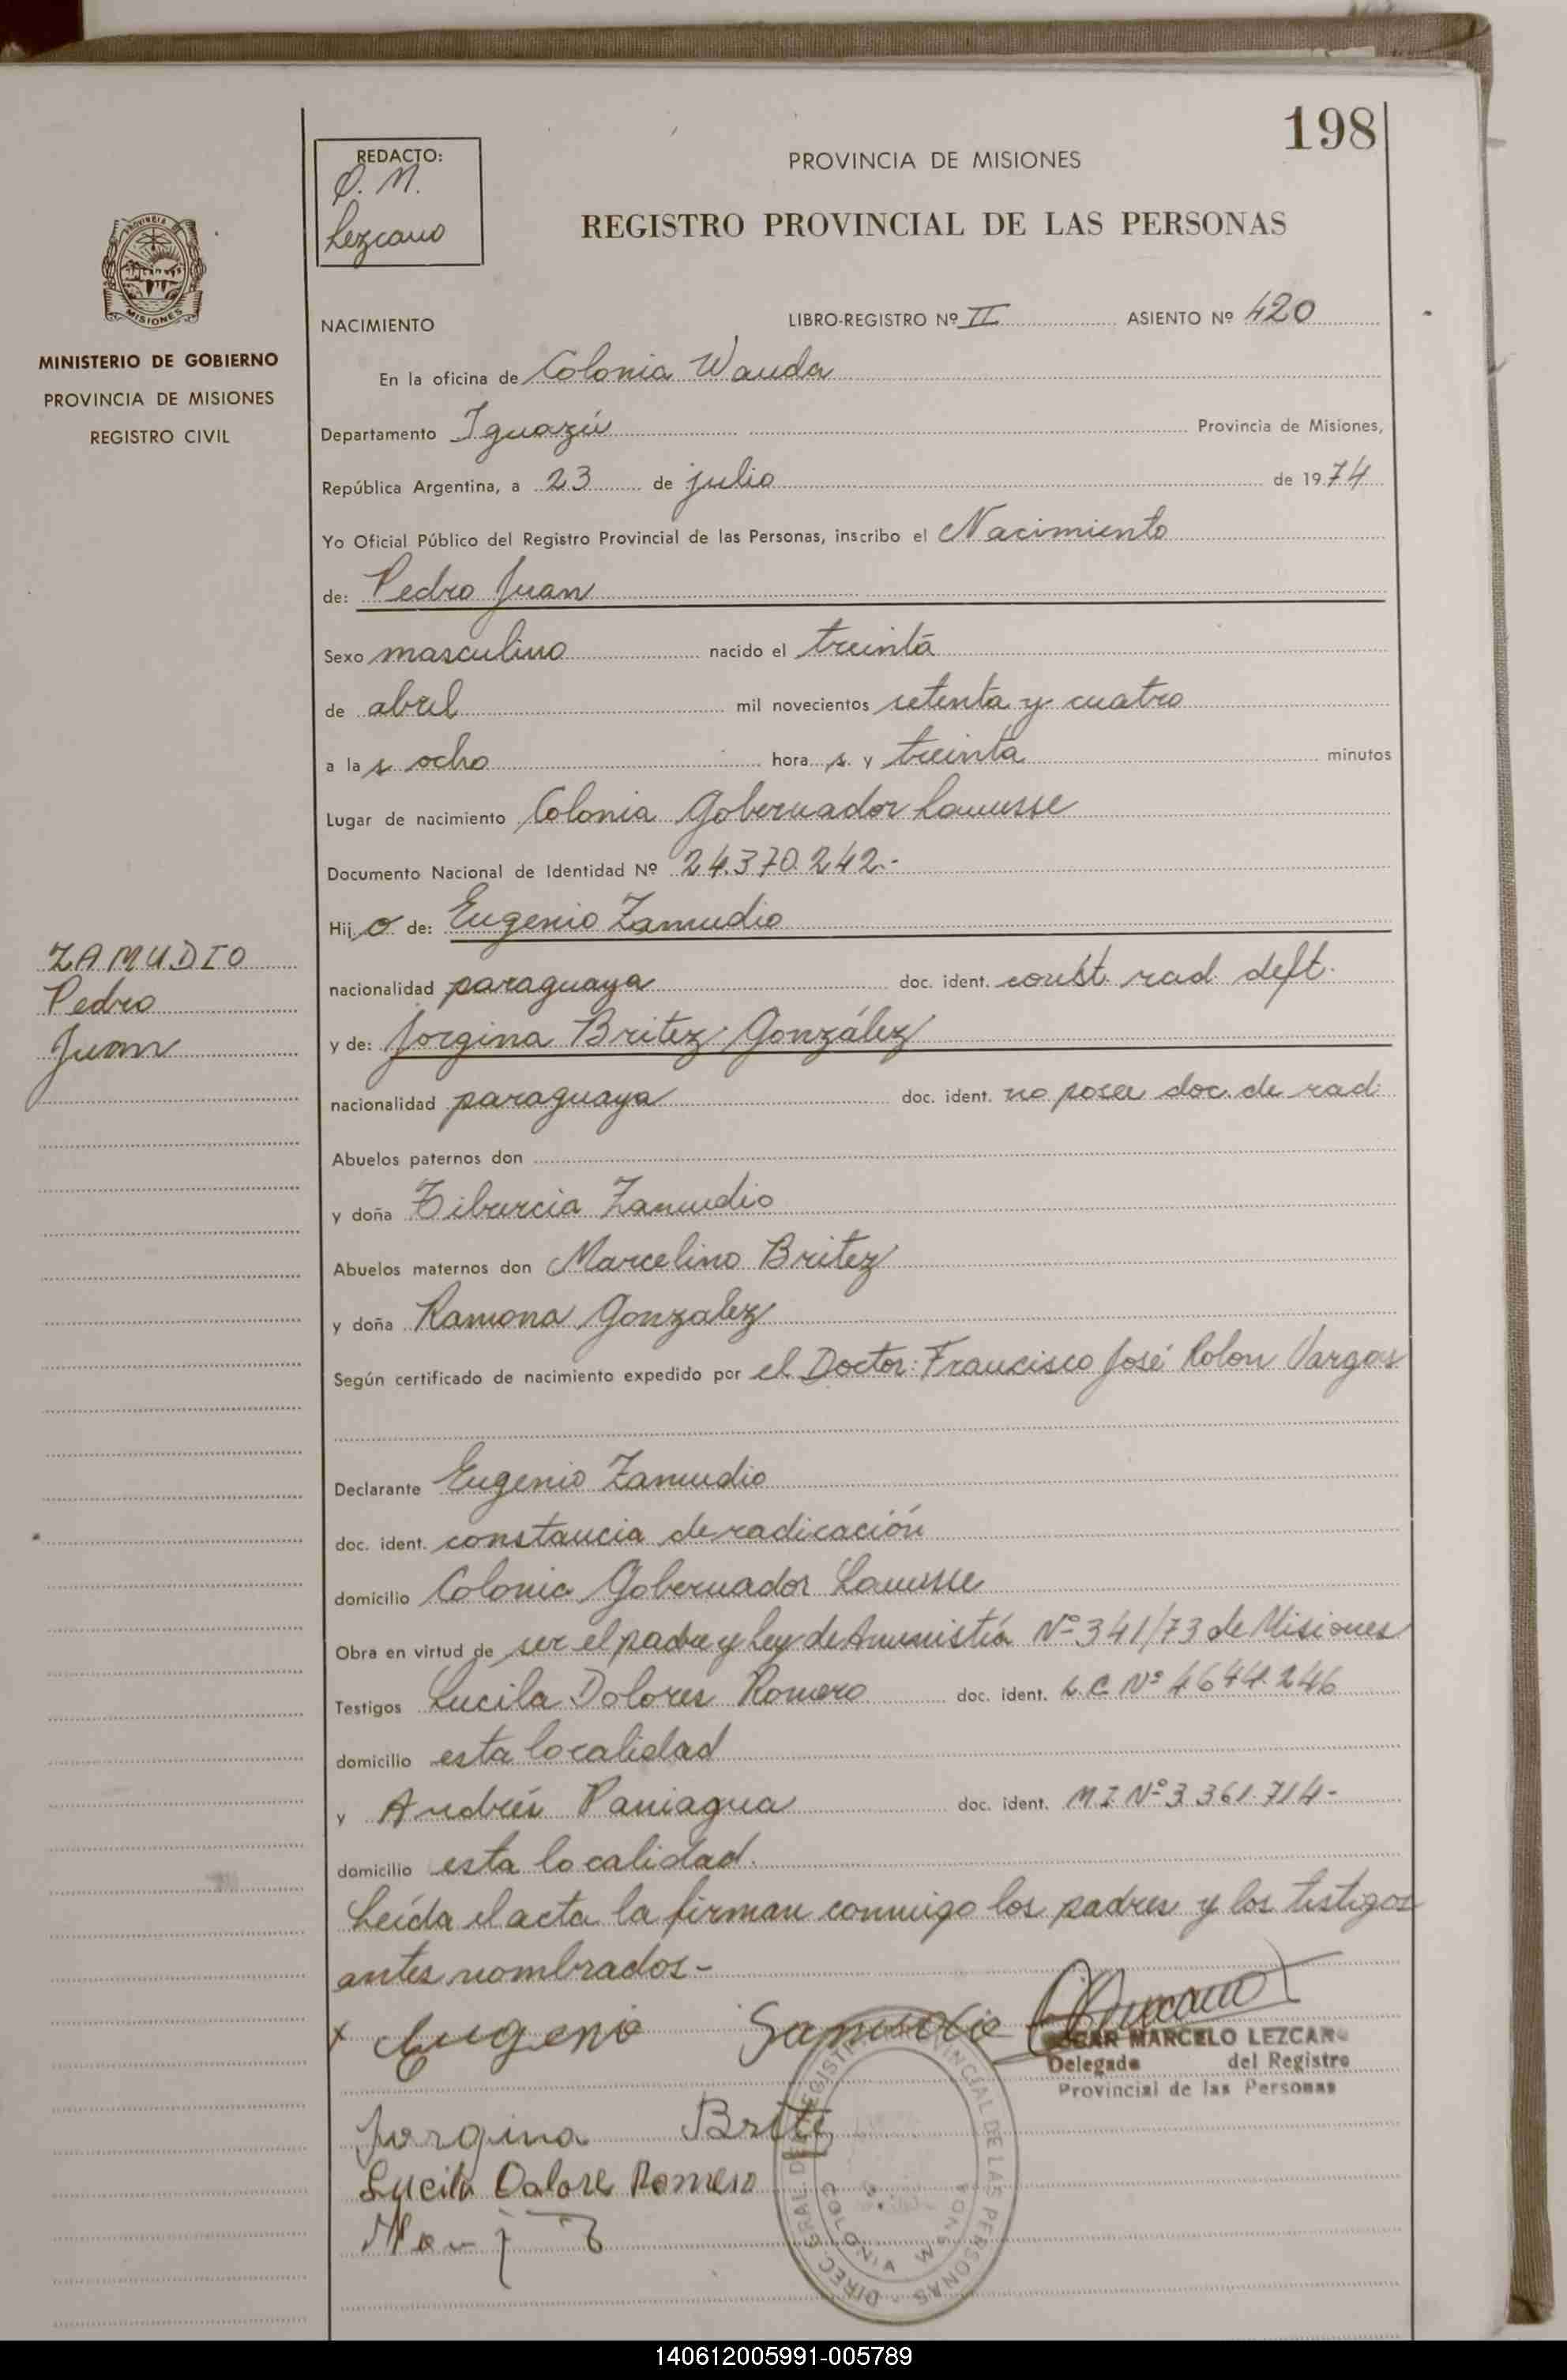 198
REDACTO:
O. M.
Lezcano
PROVINCIA DE MISIONES
REGISTRO PROVINCIAL DE LAS PERSONAS
PROVINCIA
MISIONES
MINISTERIO DE GOBIERNO
PROVINCIA DE MISIONES
REGISTRO CIVIL
NACIMIENTO LIBRO-REGISTRO Nº II ASIENTO Nº 420
En la oficina de Colonia Wanda
Departamento Iguazú Provincia de Misiones,
República Argentina, a 23 de julio de 1974
Yo Oficial Público del Registro Provincial de las Personas, inscribo el Nacimiento
de: Pedro Juan
Sexo masculino nacido el treinta
de abril mil novecientos setenta y cuatro
a las ocho hora s y treinta minutos
Lugar de nacimiento Colonia Gobernador Lanusse
Documento Nacional de Identidad Nº 24.370.242.-
Hijo de: Eugenio Zamudio
ZAMUDIO
Pedro
Juan
nacionalidad paraguaya doc. ident. const. rad. deft.
y de: Jorgina Britez González
nacionalidad paraguaya doc. ident. no posee doc. de rad.
Abuelos paternos don
y doña Tiburcia Zamudio
Abuelos maternos don Marcelino Britez
y doña Ramona Gonzalez
Según certificado de nacimiento expedido por el Doctor: Francisco José Rolon Vargas
Declarante Eugenio Zamudio
doc. ident. constancia de radicación
domicilio Colonia Gobernador Lanusse
Obra en virtud de ser el padre y Ley de Amnistía Nº 341/73 de Misiones
Testigos Lucila Dolores Romero doc. ident. L.C. Nº 4644.246
domicilio esta localidad
y Andrés Paniagua doc. ident. M.I. Nº 3.361.714-
domicilio esta localidad.
Leída el acta la firman conmigo los padres y los testigos
antes nombrados-
x Eugenio Samudio
OSCAR MARCELO LEZCANO
Delegado del Registro
Provincial de las Personas
Jorgina Britez
Lucila Dalore Romero
DIREC. GRAL. DEL REGISTRO PROVINCIAL DE LAS PERSONAS
COLONIA WANDA
140612005991-005789